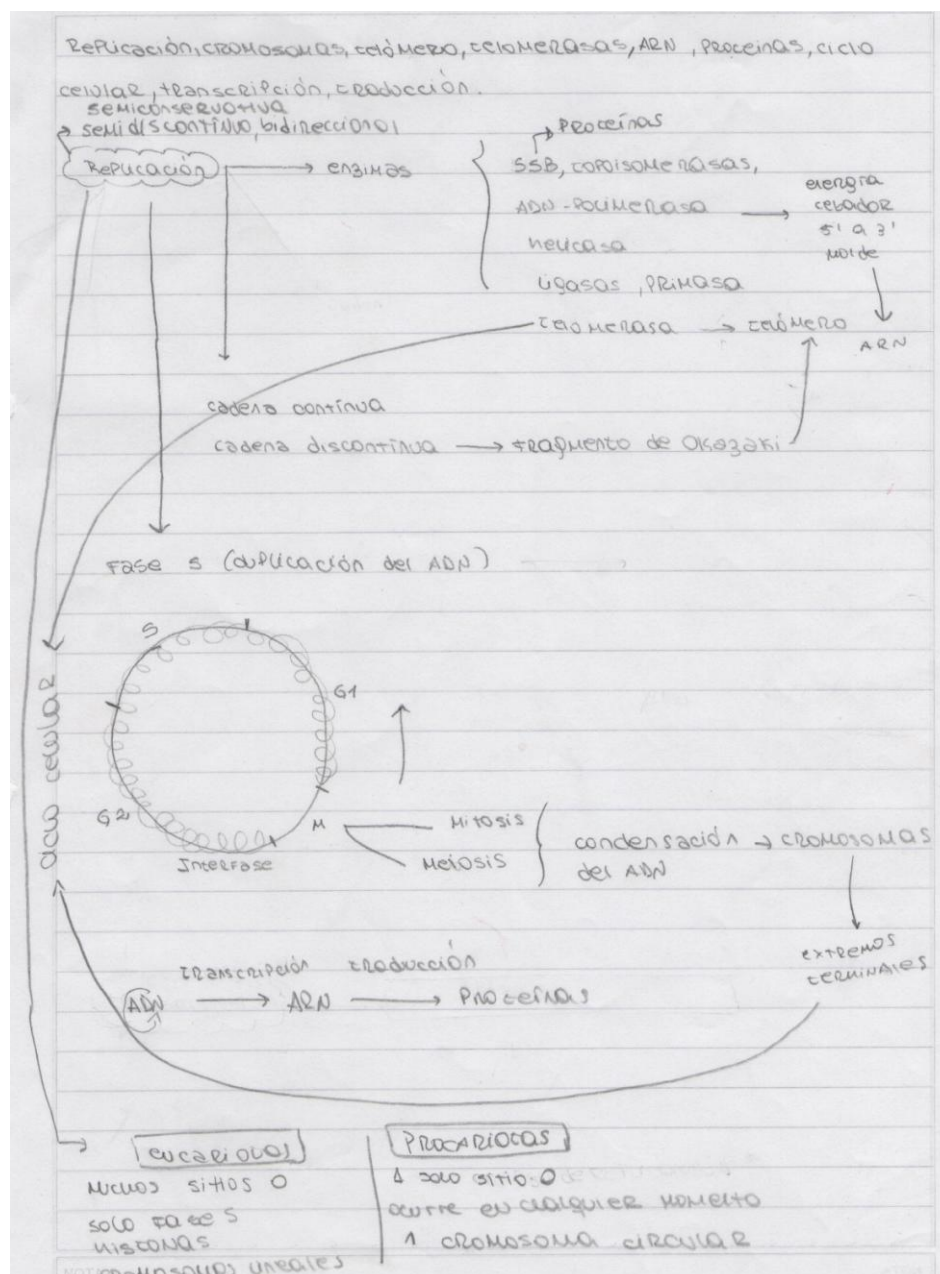 Replicación, cromosomas, telómero, telomerasas, ARN, proteinas, ciclo
celular, transcripción, traducción.
semiconservativa
semidiscontinuo, bidireccional
Replicación
enzimas
Proteínas
SSB, topoisomerasas,
ADN-Polimerasa
helicasa
ligasas, primasa
telomerasa
telómero
energia
cebador
5' a 3'
molde
ARN
cadena contínua
cadena discontínua
fragmento de Okazaki
Fase S (duplicación del ADN)
ciclo celular
S
G1
G2
M
Interfase
Mitosis
Meiosis
condensación
del ADN
cromosomas
extremos
terminales
transcripción traducción
ADN ARN Proteínas
eucariotas
Muchos sitios O
solo fase S
histonas
cromosomas lineales
PROCARIOTAS
1 solo sitio O
ocurre en cualquier momento
1 cromosoma circular